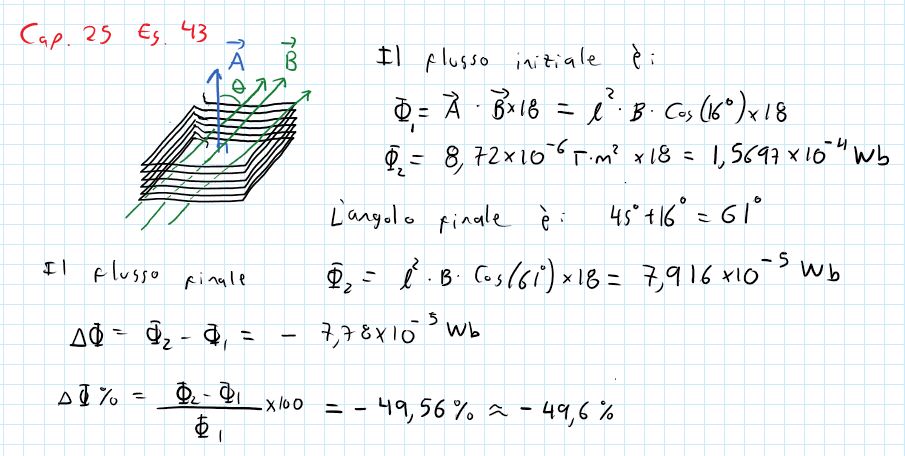 Cap. 25 Es. 43
A⃗ B⃗
θ
Il flusso iniziale è:
Φ₁ = A⃗ · B⃗ x 18 = l² · B · Cos(16°) x 18
Φ₂ = 8,72 x 10⁻⁶ T·m² x 18 = 1,5697 x 10⁻⁴ Wb
L'angolo finale è: 45° + 16° = 61°
Il flusso finale Φ₂ = l² · B · Cos(61°) x 18 = 7,916 x 10⁻⁵ Wb
ΔΦ = Φ₂ - Φ₁ = - 7,78 x 10⁻⁵ Wb
ΔΦ% = (Φ₂ - Φ₁)/Φ₁ x 100 = - 49,56 % ≈ - 49,6 %